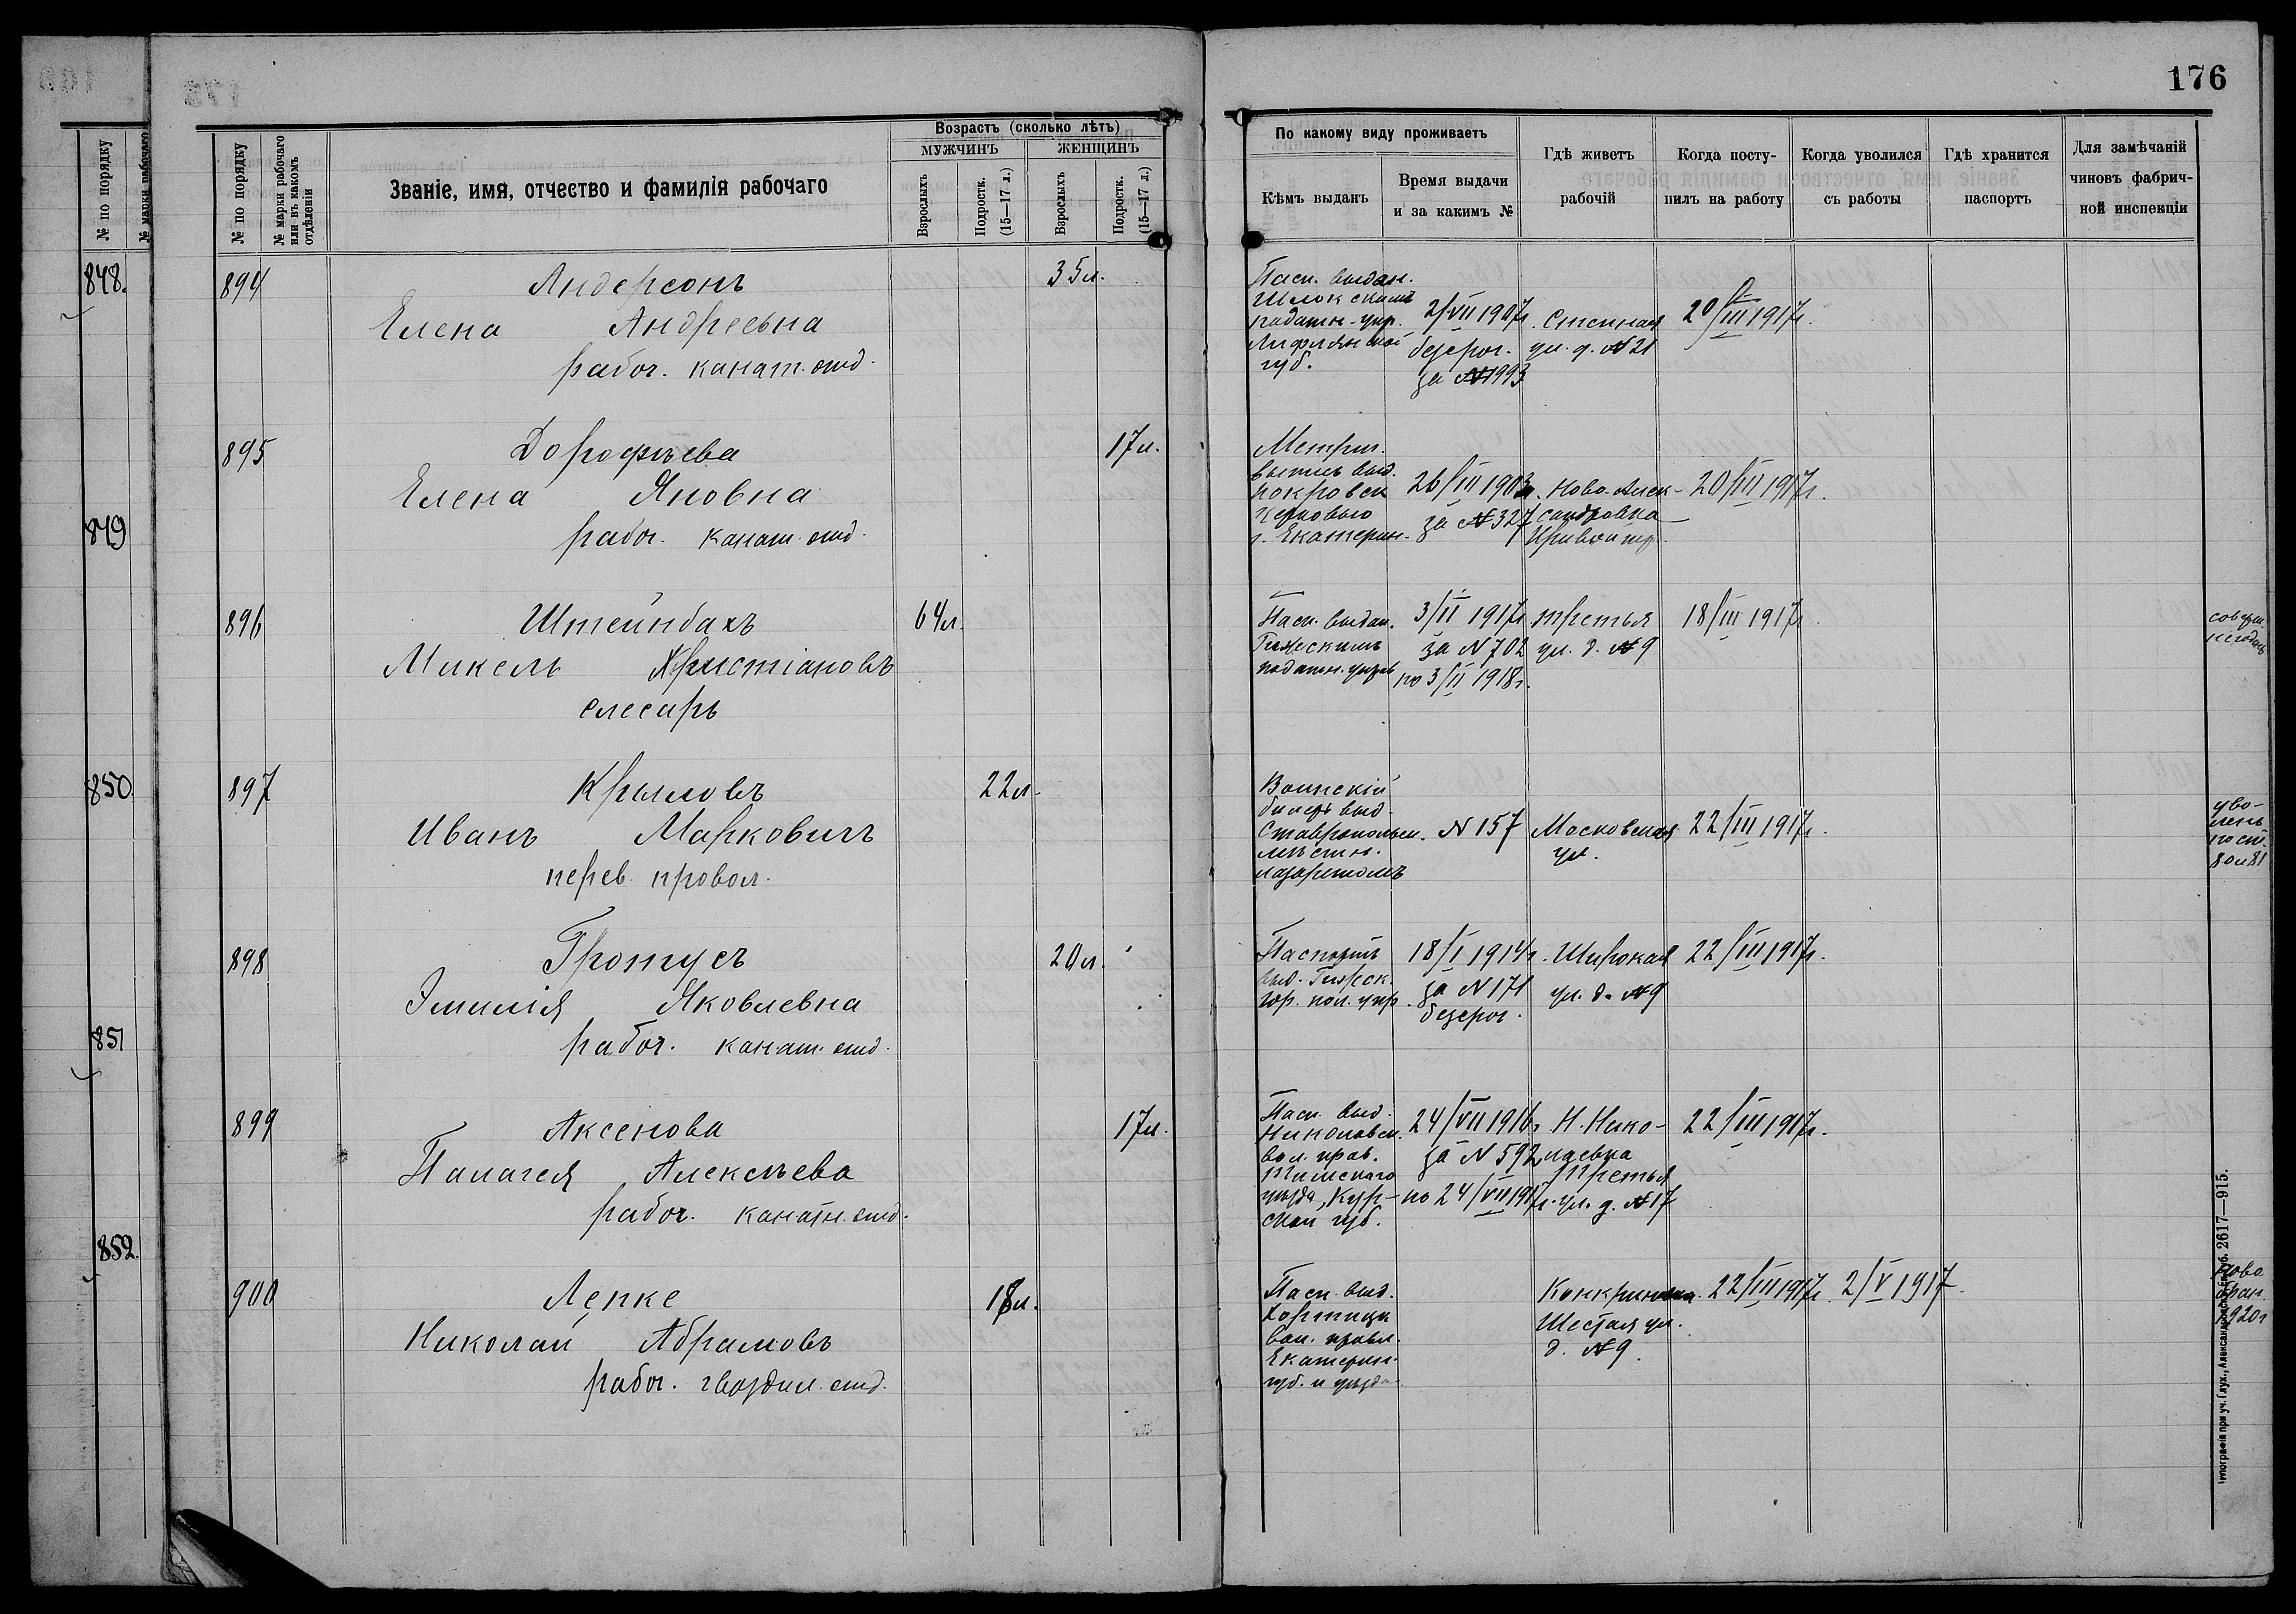 176
№ по порядку
№ марки рабочаго
848.
849
850.
851
852.
№ по порядку
№ марки рабочаго
или въ какомъ
отдѣленіи
Званіе, имя, отчество и фамилія рабочаго
Возрастъ (сколько лѣтъ)
МУЖЧИНЪ
ЖЕНЩИНЪ
Взрослыхъ
Подростк.
(15—17 л.)
Взрослыхъ
Подростк.
(15—17 л.)
По какому виду проживаетъ
Кѣмъ выданъ
Время выдачи
и за какимъ №
Гдѣ живетъ
рабочій
Когда посту-
пилъ на работу
Когда уволился
съ работы
Гдѣ хранится
паспортъ
Для замѣчаній
чиновъ фабрич-
ной инспекціи
894
Андерсонъ
Елена Андреевна
рабоч. канат. отд.
35 л.
Пасп. выдан.
Шлокскимъ
податн. упр.
Лифлянской
губ.
2/VII 1907г.
безсроч.
за №1993
Степная
ул. д. №21
20/III 1917г.
895
Дорофѣева
Елена Яновна
рабоч. канат. отд.
17 л.
Метрич.
выпись выд.
покровск.
церковью
г. Екатерин-
26/III 1903г.
за №327
Ново-Алек-
сандровка
20/III 1917г.
896
Штейнбахъ
Микель Христіановъ
слесарь
64 л.
Пасп. выдан.
Рижскимъ
податн. управ
3/II 1917г
за №702
по 3/II 1918г.
третья
ул. д. №9
18/III 1917г
897
Крыловъ
Иванъ Марковичъ
перев. провол.
22 л.
Воинскій
билетъ выд.
Ставропольск.
мѣстн.
лазаретомъ
№157
Московская
ул.
22/III 1917г.
уво-
ленъ
898
Гротусъ
Эмилія Яковлевна
рабоч. канат. отд.
20 л.
Паспортъ
выд. Рижск.
гор. пол. упр.
18/I 1914г.
за №171
безсроч.
Широкая
ул. д. №9
22/III 1917г.
899
Аксенова
Палагея Алексѣева
рабоч. канатн. отд.
17 л.
Пасп. выд.
Николаевск.
вол. прав.
Тимскаго
уѣзда, Кур-
ской губ.
24/VII 1916г
за №592
по 24/VII 1917г.
Н. Нико-
лаевка
Третья
ул. д. №17
22/III 1917г.
900
Лепке
Николай Абрамовъ
рабоч. гвоздил. отд.
18 л.
Пасп. выд.
Хортицк
вол. правл.
Екатерин.
губ. и уѣзда
Шестая ул.
д. №9.
22/III 1917г.
2/V 1917
ново
бран.
1920г
2617—915.